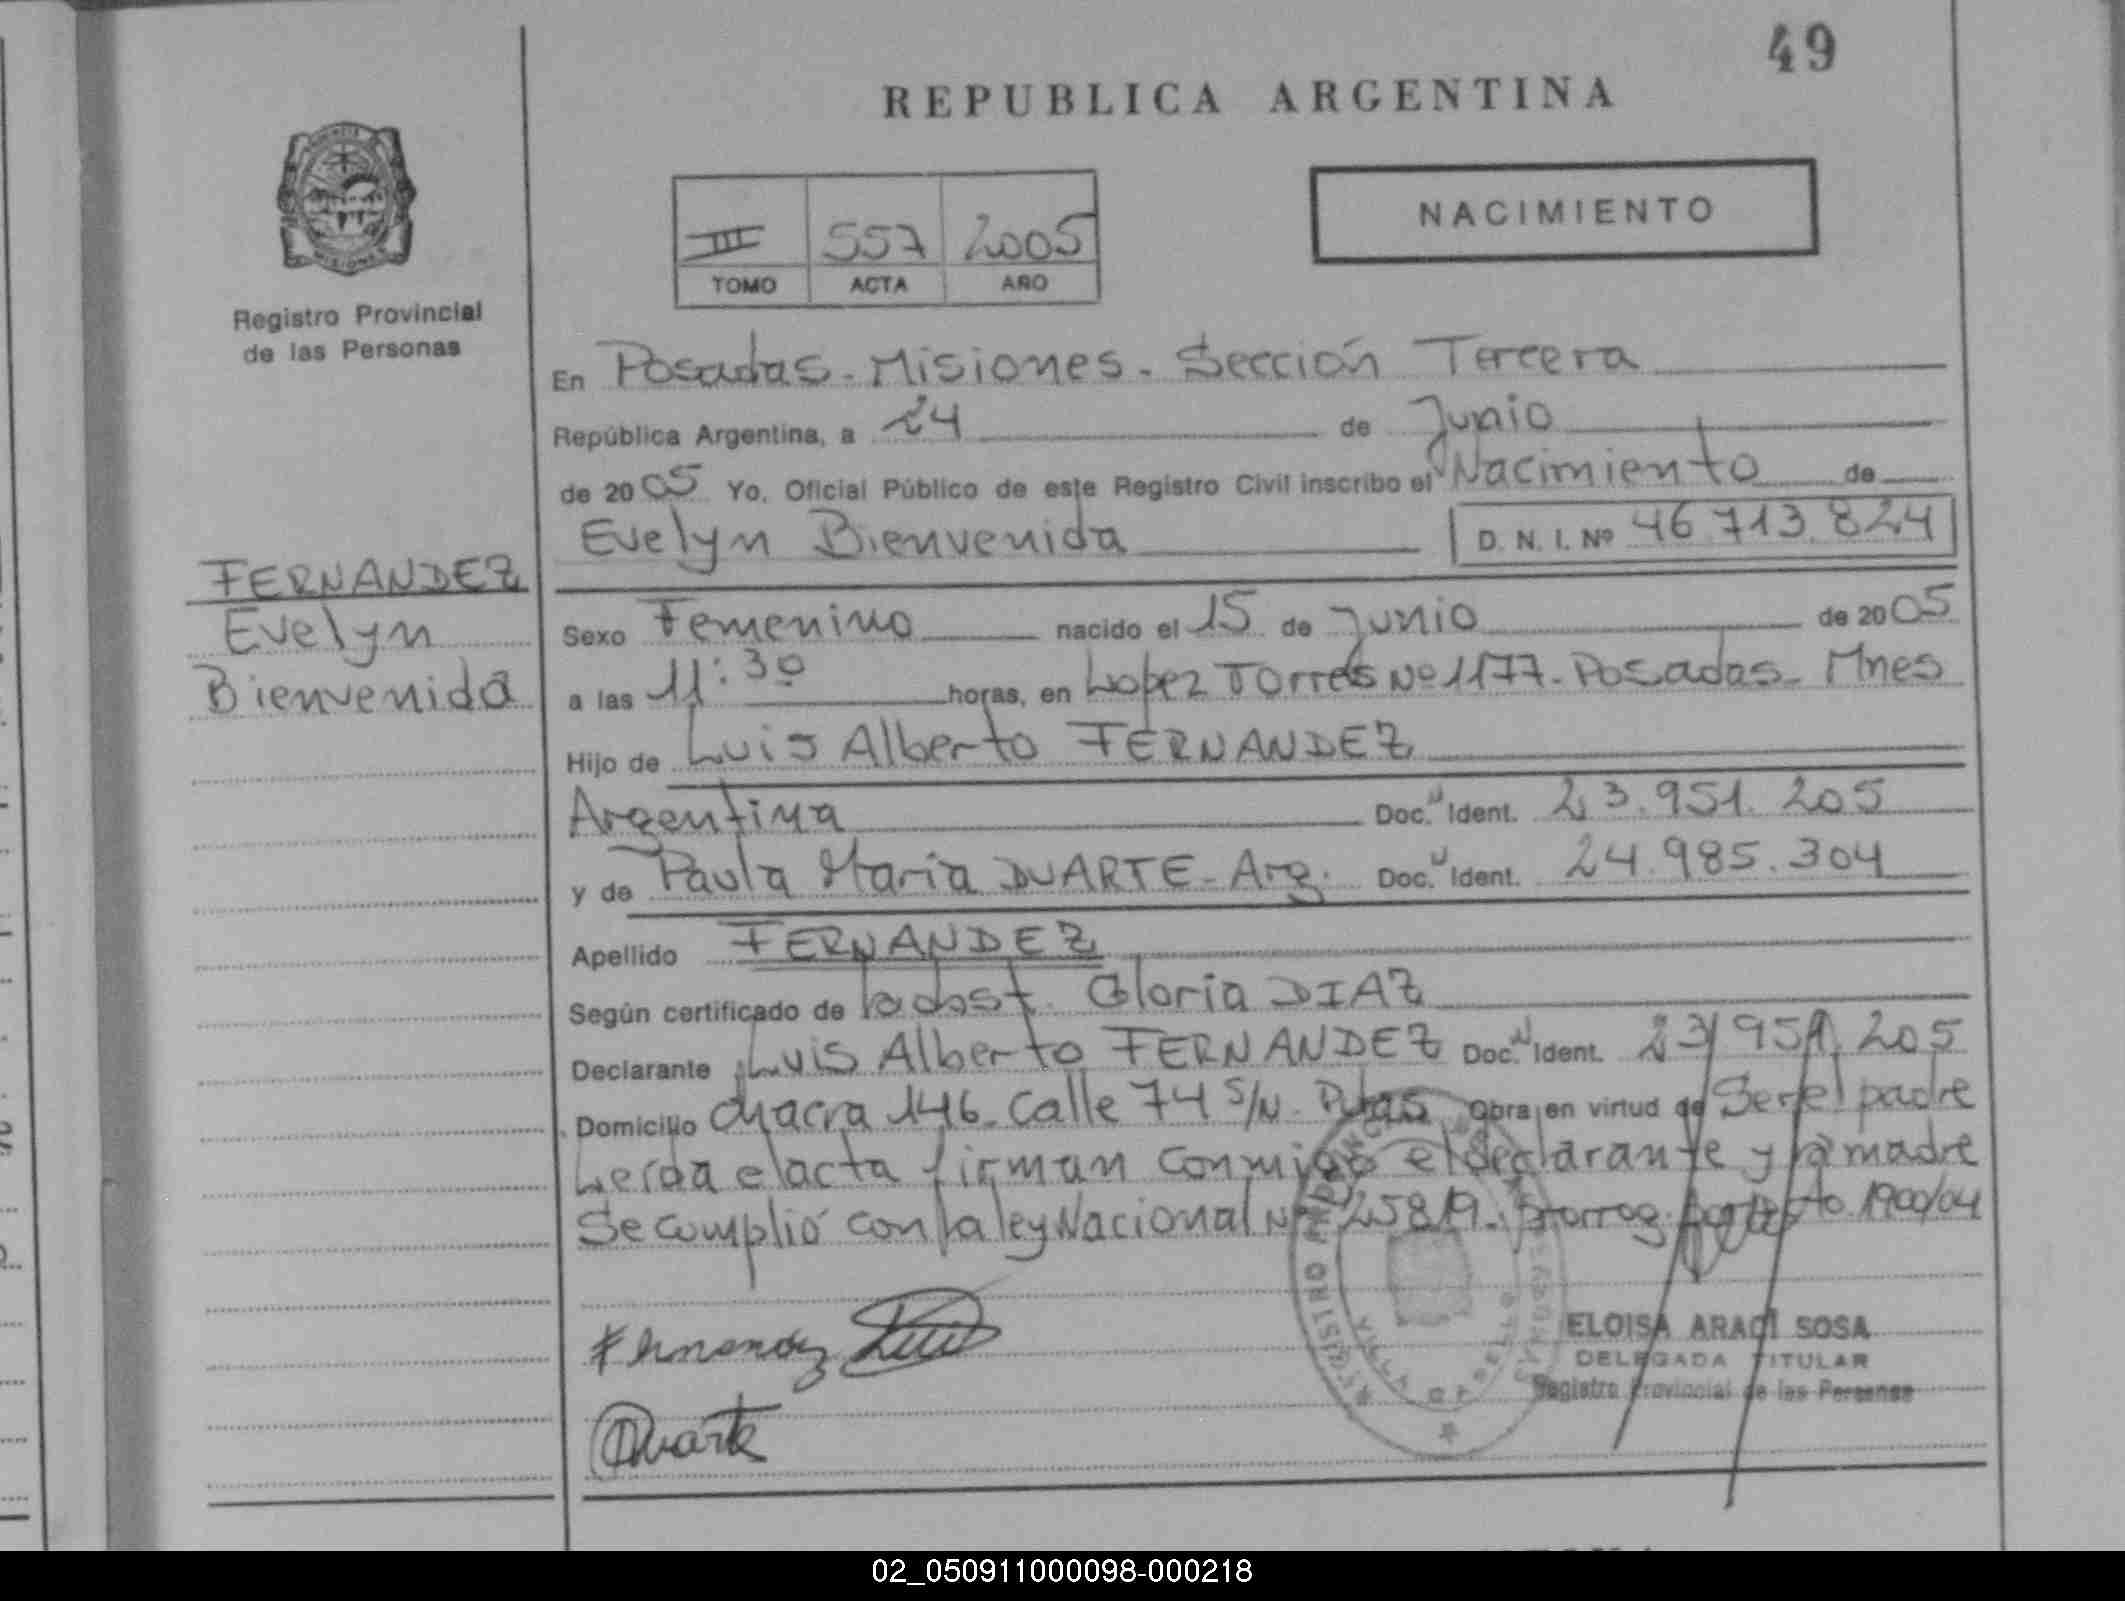 49
REPUBLICA ARGENTINA
III 557 2005
TOMO ACTA AÑO
NACIMIENTO
MISIONES
Registro Provincial
de las Personas
En Posadas - Misiones - Sección Tercera
República Argentina, a 24 de Junio
de 2005 Yo, Oficial Público de este Registro Civil inscribo el Nacimiento de
Evelyn Bienvenida D. N. I. Nº 46.713.824
FERNANDEZ
Evelyn
Bienvenida
Sexo Femenino nacido el 15 de Junio de 2005
a las 11:30 horas, en Lopez Torres Nº 1177 - Posadas - Mnes
Hijo de Luis Alberto FERNANDEZ
Argentina Doc. Ident. 23.951.205
y de Paula Maria DUARTE - Arg. Doc. Ident. 24.985.304
Apellido FERNANDEZ
Según certificado de Gloria DIAZ
Declarante Luis Alberto FERNANDEZ Doc. Ident. 23.951.205
Domicilio Chacra 146 - Calle 74 S/N - Pdas Obra en virtud de Ser el padre
Leida el acta firman conmigo el declarante y la madre
Se cumplió con la ley Nacional Nº 25819 - prorrog. por 1900/04
Fernandez Luis
Duarte
ELOISA ARACI SOSA
DELEGADA TITULAR
Registro Provincial de las Personas
02_050911000098-000218